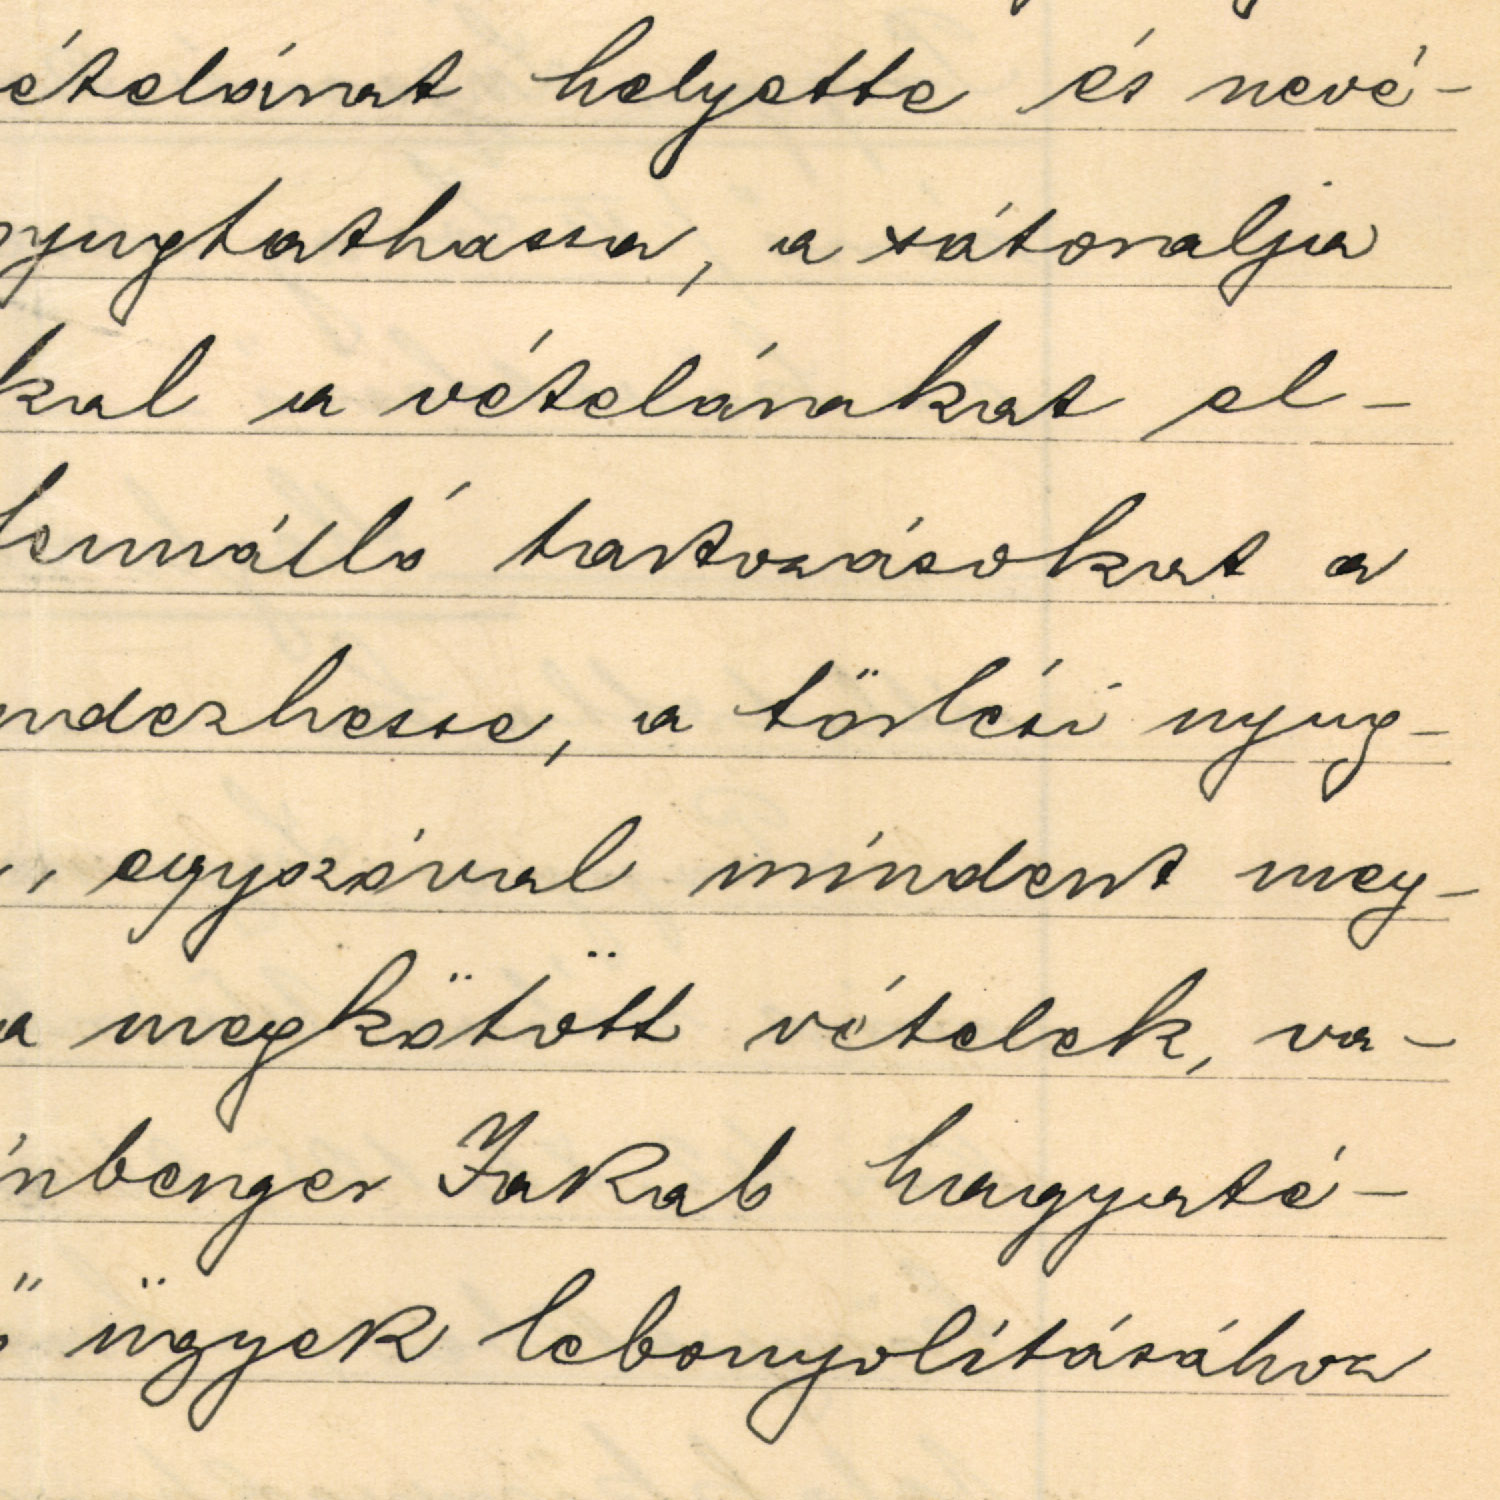 ételárat helyette és nevé-
nyugtathassa, a sátoralja
kal a vételárakat el-
lennálló tartozásokat a
ndezhesse, a törlési nyug-
, egyszóval mindent meg-
a megkötött vételek, va-
nberger Jakab hagyaté-
ő ügyek lebonyolításához